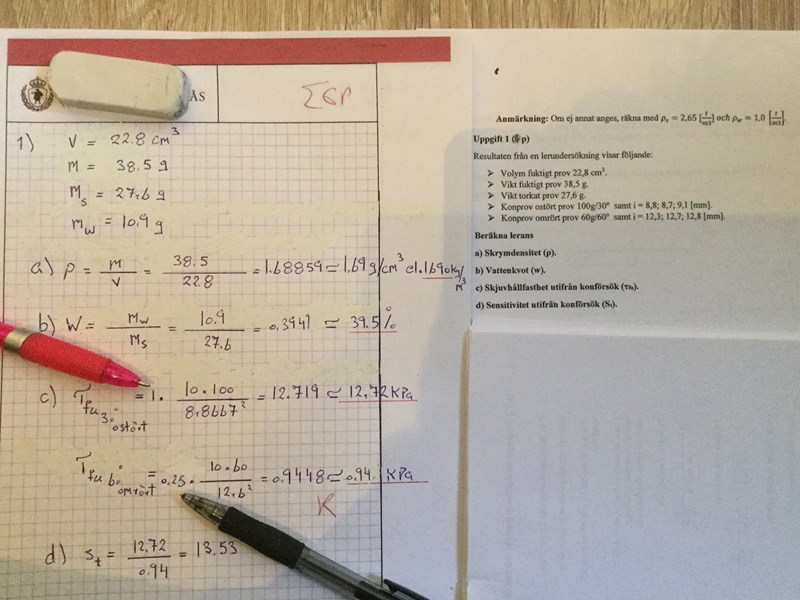 ÅS
Σ6p
1) V = 22.8 cm³
m = 38.5 g
m_s = 27.6 g
m_w = 10.9 g
a) ρ = m/V = 38.5/22.8 = 1.68859 ≃ 1.69 g/cm³ el. 1.690 kg/m³
b) W = m_w/m_s = 10.9/27.6 = 0.3949 ≃ 39.5 %
c) τ_fu 30° ostört = 1 · 10·100/8.8667² = 12.719 ≃ 12,72 KPa
τ_fu 60° omrört = 0.25 · 10·60/12.6² = 0.9448 ≃ 0.94 KPa
K
d) S_t = 12.72/0.94 = 13.53
Anmärkning: Om ej annat anges, räkna med ρs = 2,65 [t/m3] och ρw = 1,0 [t/m3].
Uppgift 1 (6 p)
Resultaten från en lerundersökning visar följande:
➢ Volym fuktigt prov 22,8 cm³.
➢ Vikt fuktigt prov 38,5 g.
➢ Vikt torkat prov 27,6 g.
➢ Konprov ostört prov 100g/30° samt i = 8,8; 8,7; 9,1 [mm].
➢ Konprov omrört prov 60g/60° samt i = 12,3; 12,7; 12,8 [mm].
Beräkna lerans
a) Skrymdensitet (ρ).
b) Vattenkvot (w).
c) Skjuvhållfasthet utifrån konförsök (τfu).
d) Sensitivitet utifrån konförsök (St).